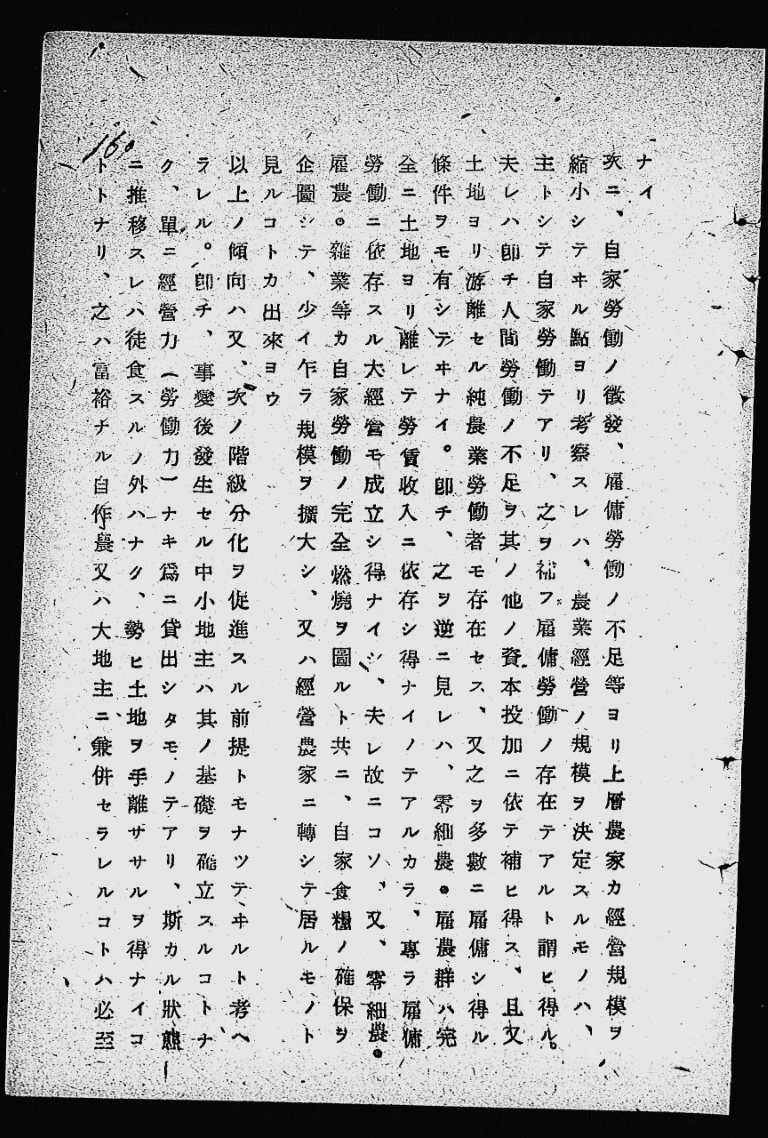 ナイ
次ニ、自家勞働ノ徴發、雇傭勞働ノ不足等ヨリ上層農家カ經營規模ヲ
縮小シテヰル點ヨリ考察スレハ、農業經營ノ規模ヲ決定スルモノハ、
主トシテ自家勞働テアリ、之ヲ補フ雇傭勞働ノ存在テアルト謂ヒ得ル。
夫レハ卽チ人間勞働ノ不足ヲ其ノ他ノ資本投加ニ依テ補ヒ得ス、且又
土地ヨリ游離セル純農業勞働者モ存在セス、又之ヲ多數ニ雇傭シ得ル
條件ヲモ有シテヰナイ。卽チ、之ヲ逆ニ見レハ、零細農。雇農群ハ完
全ニ土地ヨリ離レテ勞賃收入ニ依存シ得ナイノテアルカラ、專ラ雇傭
勞働ニ依存スル大經營モ成立シ得ナイシ、夫レ故ニコソ、又、零細農。
雇農。雜業等カ自家勞働ノ完全燃燒ヲ圖ルト共ニ、自家食糧ノ確保ヲ
企圖シテ、少イ乍ラ規模ヲ擴大シ、又ハ經營農家ニ轉シテ居ルモノト
見ルコトカ出來ヨウ
以上ノ傾向ハ又、次ノ階級分化ヲ促進スル前提トモナツテヰルト考ヘ
ラレル。卽チ、事變後發生セル中小地主ハ其ノ基礎ヲ確立スルコトナ
ク、單ニ經營力(勞働力)ナキ爲ニ貸出シタモノテアリ、斯カル狀態
ニ推移スレハ徒食スルノ外ハナク、勢ヒ土地ヲ手離ササルヲ得ナイコ
トトナリ、之ハ富裕ナル自作農又ハ大地主ニ兼併セラレルコトハ必至
160